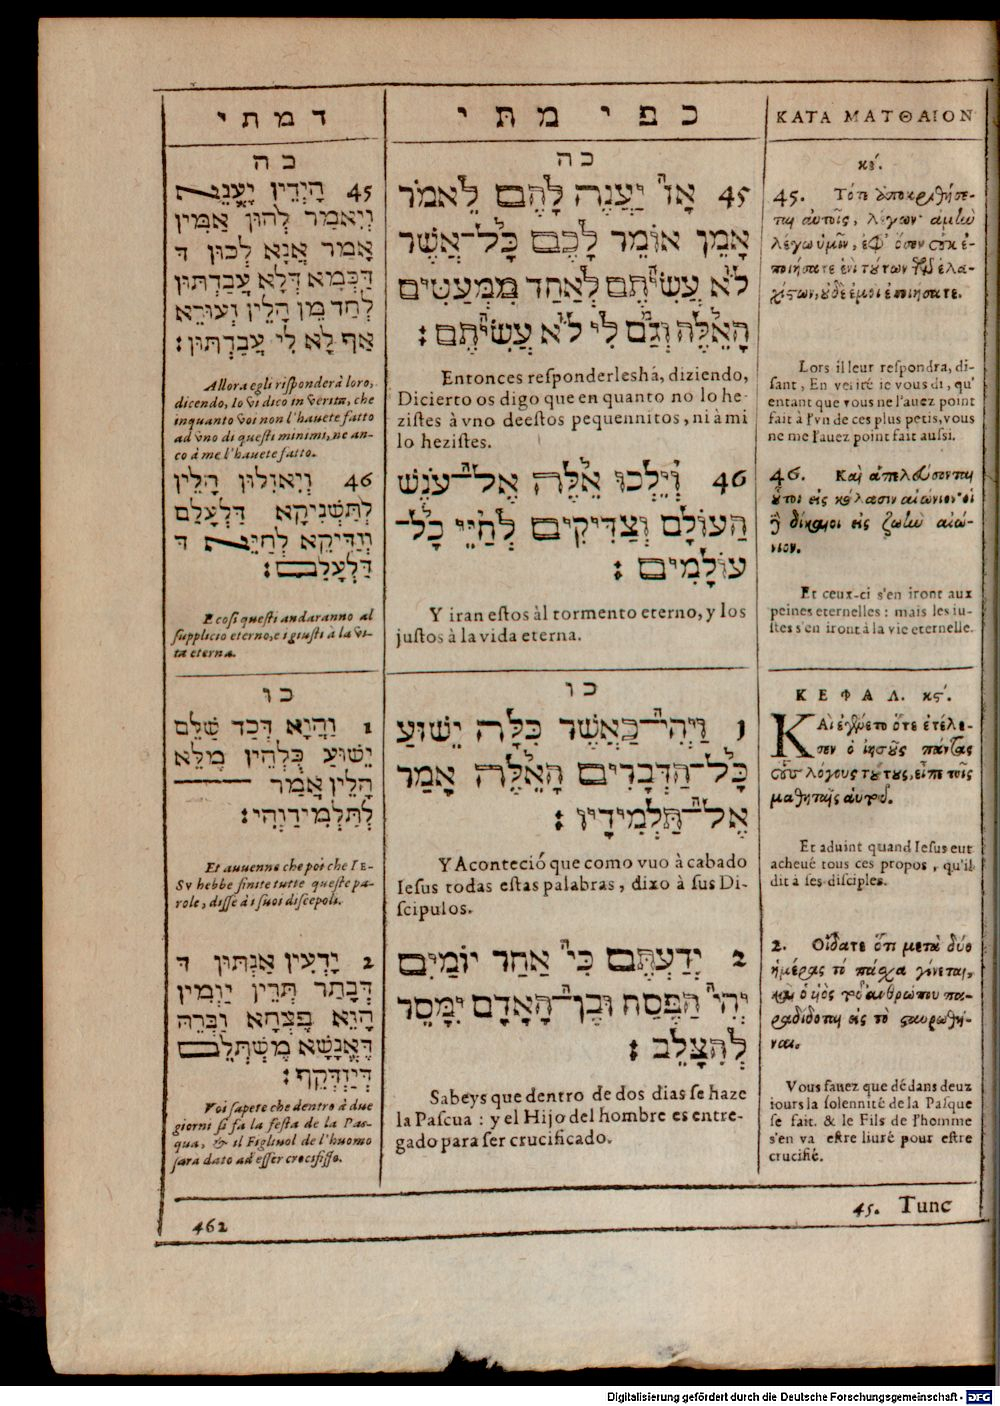 דמתי
כה
45 הָיְדֵין יָעֲנֵא
וְיֵאמַר לְהוּן אַמִּין
אָמַר אֲנָא לְכוּן ד
דַּכְמָא דְּלָא עֲבַדְתּוּן
לְחַד מִן הָלֵין זְעוּרֵא
אַף לָא לִי עֲבַדְתּוּן:
Allora egli risponderà loro,
dicendo, Io vi dico in verità, che
inquanto voi non l'hauete fatto
ad vno di questi minimi, ne an-
co à me l'hauete fatto.
46 וְיֵאזְלוּן הָלֵין
לְתַּשְׁנִיקָא דַּלְעָלַם
וְזַדִּיקֵא לְחַיֵּא ד
דַּלְעָלַם:
E cosi questi andaranno al
supplicio eterno, e i giusti à la vi-
ta eterna.
כו
1 וַהֲוָא דְּכַד שַׁלֵּם
יֵשׁוּעַ כֻּלְּהֵין מֶלֵּא
הָלֵין אֲמַר
לְתַּלְמִידַוְהִי:
Et auuenne che poi che IE-
SV hebbe finite tutte queste pa-
role, disse à i suoi discepoli.
2 יָדְעִין אַנְתּוּן ד
דְּבָתַר תְּרֵין יַוְמִין
הָוֵא פֶּצְחָא וַבְרֵהּ
דְּאֲנָשָׁא מֶשְׁתְּלֵם
דְּיִזְדְּקֵף:
Voi sapete che dentro à due
giorni si fa la festa de la Pas-
qua, & il Figliuol de l'huomo
sara dato ad esser crocifisso.
כפי מתי
כה
45 אָז יַעֲנֶה לָהֶם לֵאמֹר
אָמֵן אוֹמֵר לָכֶם כָּל־אֲשֶׁר
לֹא עֲשִׂיתֶם לְאַחַד מִמְּעַטִּים
הָאֵלֶּה וְגַם לִי לֹא עֲשִׂיתֶם:
Entonces responderleshá, diziendo,
Dicierto os digo que en quanto no lo he-
zistes à vno deestos pequennitos, ni à mi
lo hezistes.
46 וְיֵלְכוּ אֵלֶּה אֶל־עֹנֶשׁ
הַעוֹלָם וְצַדִּיקִים לְחַיֵּי כָּל־
עוֹלָמִים:
Y iran estos àl tormento eterno, y los
justos à la vida eterna.
כו
1 וַיְהִי־כַּאֲשֶׁר כִּלָּה יֵשׁוּעַ
כָּל־הַדְּבָרִים הָאֵלֶּה אָמַר
אֶל־תַּלְמִידָיו:
Y Aconteció que como vuo à cabado
Iesus todas estas palabras, dixo à sus Di-
scipulos.
2 יְדַעְתֶּם כִּי אַחַד יוֹמַיִם
יְהִי הַפֶּסַח וּבֶן־הָאָדָם יִמָּסֵר
לְהִצָּלֵב:
Sabeys que dentro de dos dias se haze
la Pascua: y el Hijo del hombre es entre-
gado para ser crucificado.
ΚΑΤΑ ΜΑΤΘΑΙΟΝ
κέ.
45. Τότε ἀποκριθήσε-
ται αὐτοῖς, λέγων· ἀμὴν
λέγω ὑμῖν, ἐφ' ὅσον οὐκ ἐ-
ποιήσατε ἑνὶ τούτων τῶν ἐλα-
χίστων, οὐδὲ ἐμοὶ ἐποιήσατε.
Lors il leur respondra, di-
sant, En verité ie vous di, qu'
entant que vous ne l'auez point
fait à l'vn de ces plus petis, vous
ne me l'auez point fait aussi.
46. Καὶ ἀπελεύσονται
οὗτοι εἰς κόλασιν αἰώνιον· οἱ
δὲ δίκαιοι εἰς ζωὴν αἰώ-
νιον.
Et ceux-ci s'en iront aux
peines eternelles: mais les iu-
stes s'en iront à la vie eternelle.
ΚΕΦΑΛ. κϛ'.
ΚΑὶ ἐγένετο ὅτε ἐτέλε-
σεν ὁ ἰησοῦς πάντας
τοὺς λόγους τούτους, εἶπε τοῖς
μαθηταῖς αὐτοῦ.
Et aduint quand Iesus eut
acheué tous ces propos, qu'il
dit à ses disciples.
2. Οἴδατε ὅτι μετὰ δύο
ἡμέρας τὸ πάσχα γίνεται,
καὶ ὁ υἱὸς τοῦ ἀνθρώπου πα-
ραδίδοται εἰς τὸ σταυρωθῆ-
ναι.
Vous sauez que dédans deux
iours la solennité de la Pasque
se fait. & le Fils de l'homme
s'en va estre liuré pour estre
crucifié.
45. Tunc
462
Digitalisierung gefördert durch die Deutsche Forschungsgemeinschaft - DFG